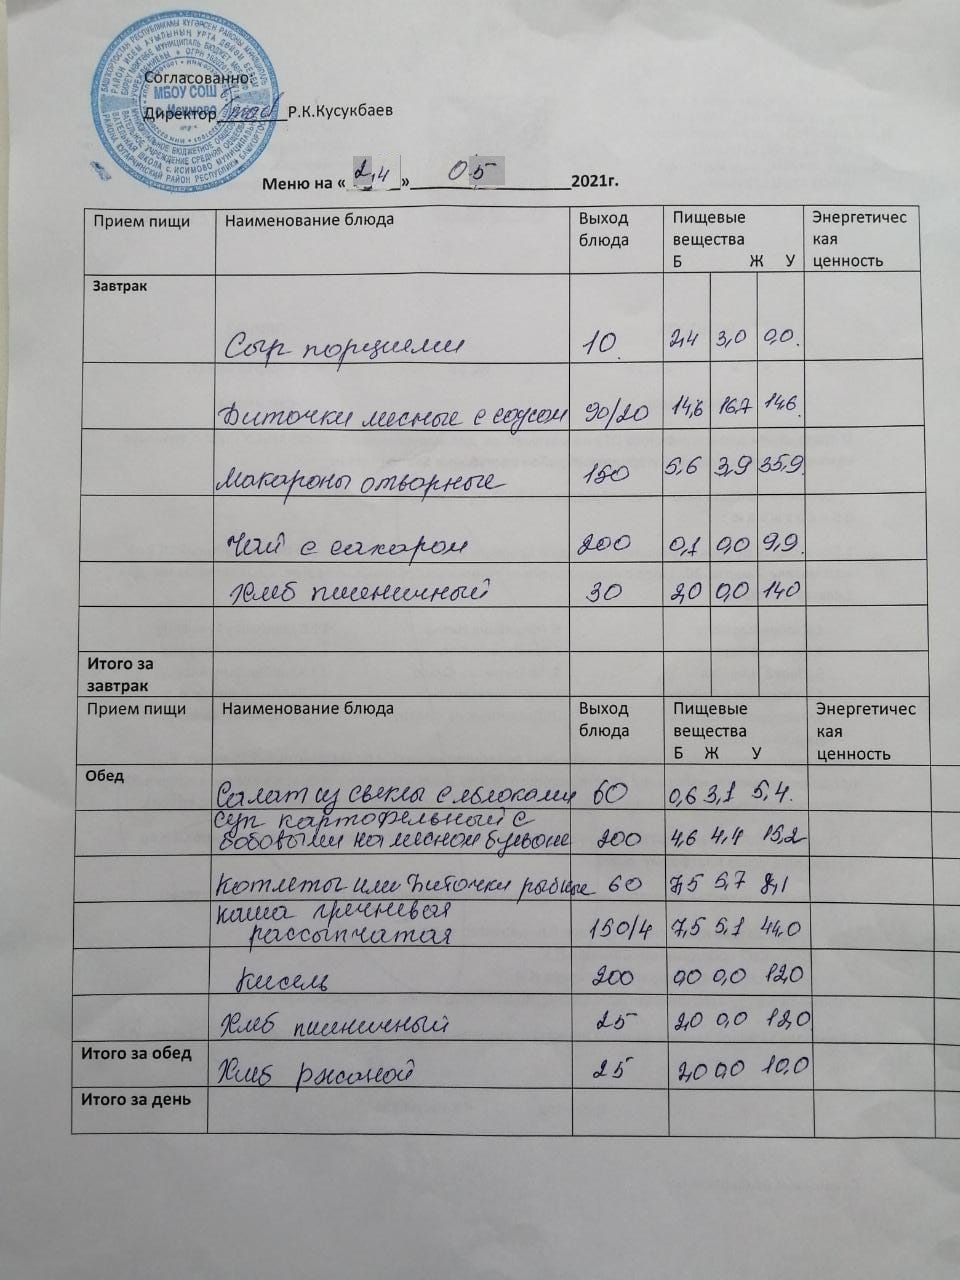 Согласованно:
МБОУ СОШ
с. Исимово
Директор Р.К.Кусукбаев
Меню на « 24 » 05 2021г.
Прием пищи Наименование блюда Выход блюда Пищевые вещества Б Ж У Энергетическая ценность
Завтрак
Сыр порциями 10 2,4 3,0 0,0.
Биточки мясные с соусом 90/20 14,6 16,7 14,6
Макароны отварные 150 5,6 3,9 35,9
Чай с сахаром 200 0,1 0,0 9,9
Хлеб пшеничный 30 2,0 0,0 14,0
Итого за завтрак
Прием пищи Наименование блюда Выход блюда Пищевые вещества Б Ж У Энергетическая ценность
Обед
Салат из свеклы с яблоками 60 0,6 3,1 5,4.
суп картофельный с
бобовыми на мясном бульоне 200 4,6 4,4 15,2
Котлеты или биточки рыбные 60 7,5 5,7 8,1
каша гречневая
рассыпчатая 150/4 7,5 5,1 44,0
Кисель 200 0,0 0,0 12,0
Хлеб пшеничный 25 2,0 0,0 12,0
Итого за обед Хлеб ржаной 25 2,0 0,0 10,0
Итого за день